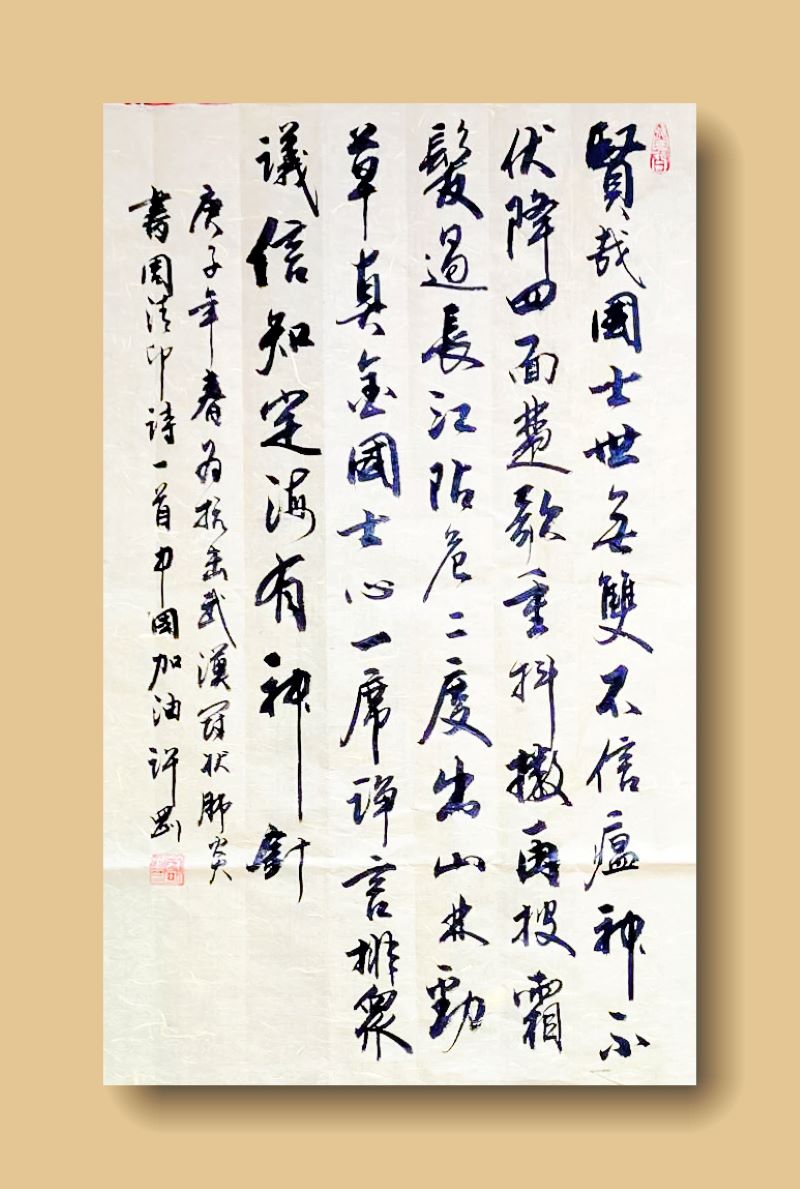 賢哉國士世無雙不信瘟神不
伏降四面楚歌重抖擻再投霜
髮過長江阽危二度出山林勁
草真金國士心一席諍言排眾
議信知定海有神針
庚子年春為抗击武漢冠状肺炎
書周清印詩一首中國加油許剛